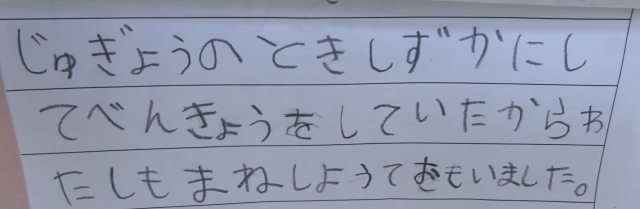 じゅぎょうのときしずかにし
てべんきょうをしていたからわ
たしもまねしようておもいました。